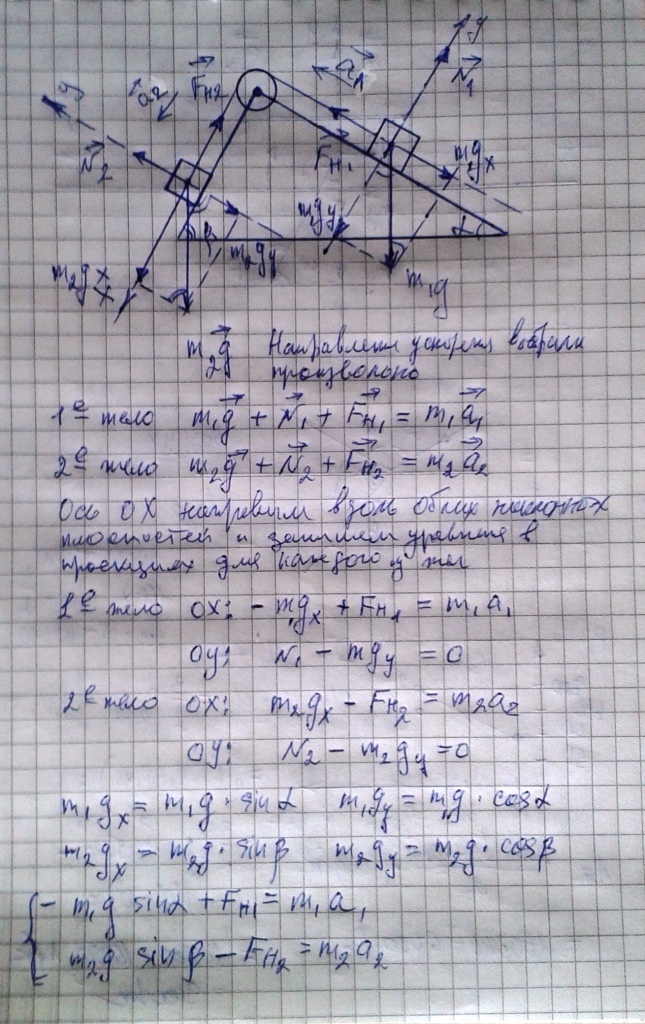 y
y
a⃗₂
F⃗н₂
a⃗₁
N⃗₁
N⃗₂
F⃗н₁
m₁g⃗x
m₁gy
α
β
m₂gy
m₂gx
x
m₁g
m₂g⃗ Направления ускорения выбрали
произвольно
1ᵉ тело m₁g⃗ + N⃗₁ + F⃗н₁ = m₁a⃗₁
2ᵉ тело m₂g⃗ + N⃗₂ + F⃗н₂ = m₂a⃗₂
Ось OX направим вдоль обеих наклонных
плоскостей и запишем уравнения в
проекциях для каждого из тел
1ᵉ тело OX: - m₁gx + Fн₁ = m₁a₁
OY: N₁ - m₁gy = 0
2ᵉ тело OX: m₂gx - Fн₂ = m₂a₂
OY: N₂ - m₂gy = 0
m₁gx = m₁g · sinα m₁gy = m₁g · cosα
m₂gx = m₂g · sinβ m₂gy = m₂g · cosβ
{ - m₁g sinα + Fн₁ = m₁a₁
m₂g sinβ - Fн₂ = m₂a₂